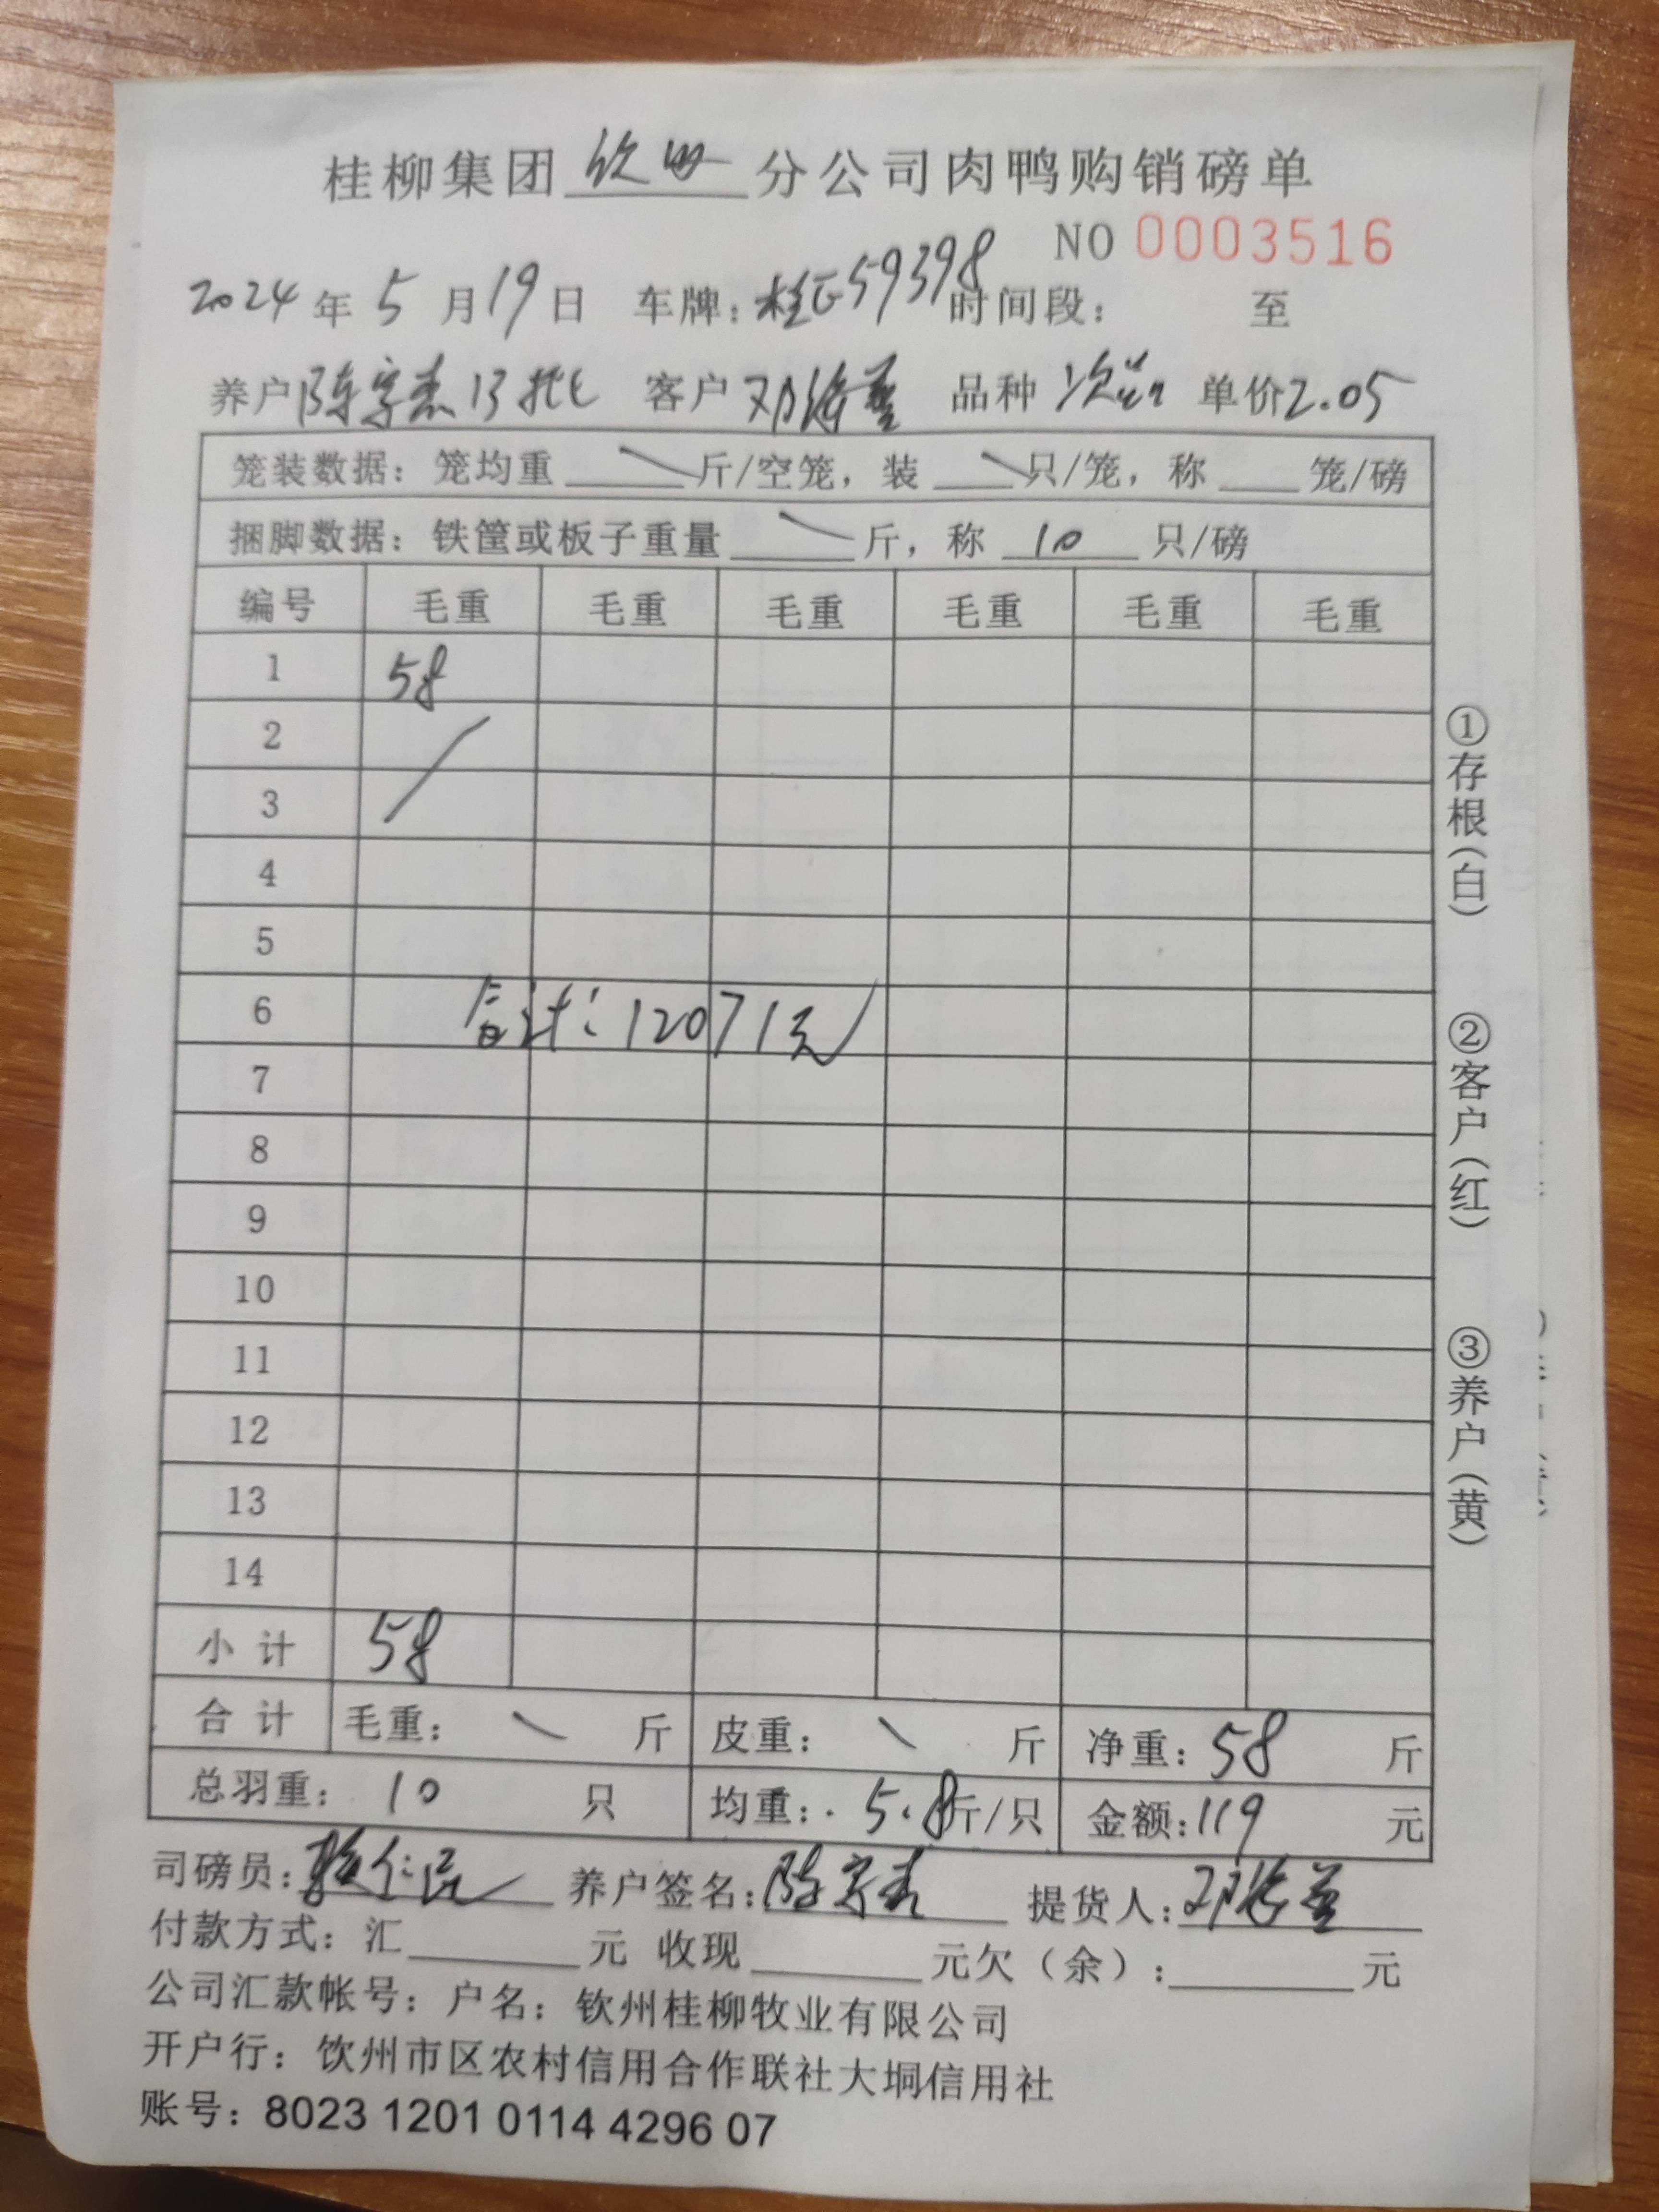 桂柳集团 钦州 分公司肉鸭购销磅单
NO 0003516
2024 年 5 月 19 日 车牌: 桂E59398 时间段: 至
养户 陈家杰 13批 客户 邓 品种 次 单价 2.05
笼装数据: 笼均重 斤/空笼, 装 只/笼, 称 笼/磅
捆脚数据: 铁筐或板子重量 斤, 称 10 只/磅
编号 毛重 毛重 毛重 毛重 毛重 毛重
1 58
2
3
4
5
6 合计: 12071元
7
8
9
10
11
12
13
14
小 计 58
合 计 毛重: 斤 皮重: 斤 净重: 58 斤
总羽重: 10 只 均重: 5.8 斤/只 金额: 119 元
司磅员: 养户签名: 陈家杰 提货人: 邓
付款方式: 汇 元 收现 元欠(余): 元
公司汇款帐号: 户名: 钦州桂柳牧业有限公司
开户行: 饮州市区农村信用合作联社大垌信用社
账号: 8023 1201 0114 4296 07
①存根(白)
②客户(红)
③养户(黄)